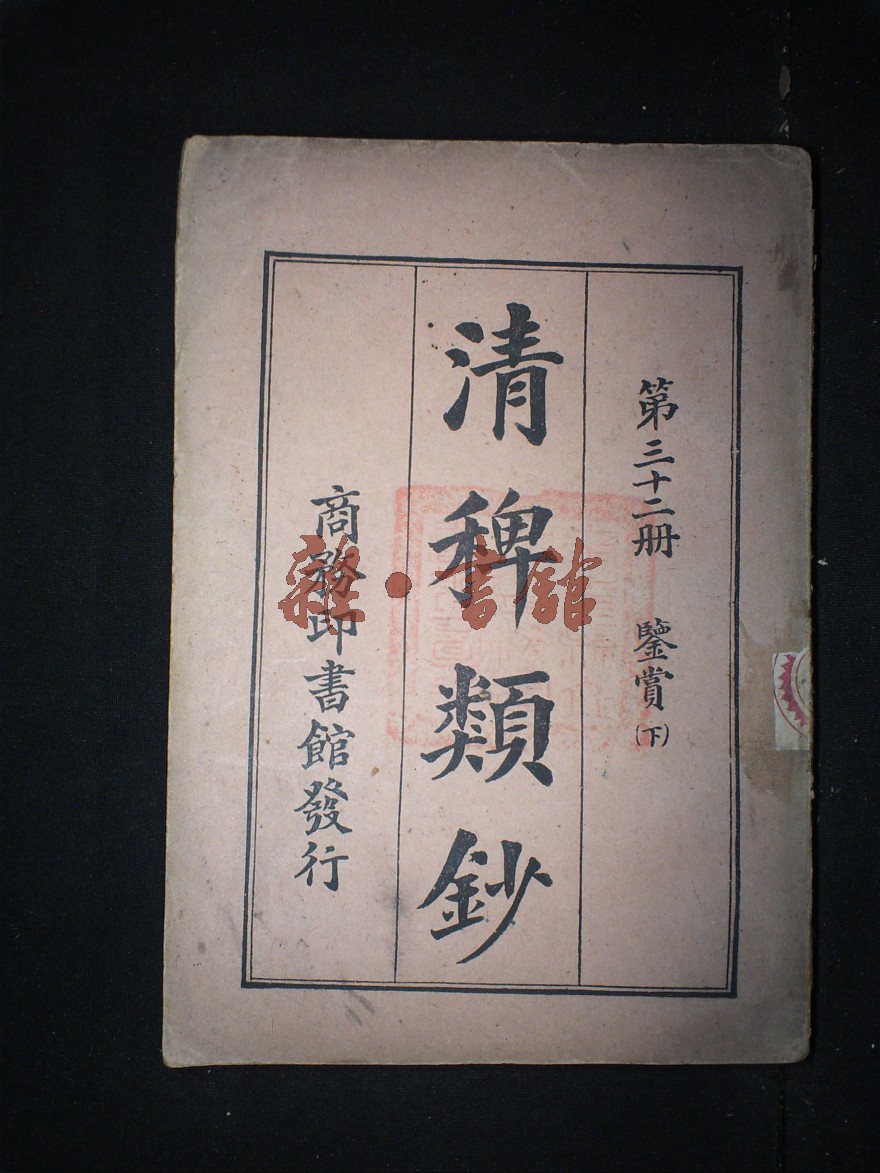 第三十二册 鑒賞(下)
清稗類鈔
商務印書館發行
雜·書館